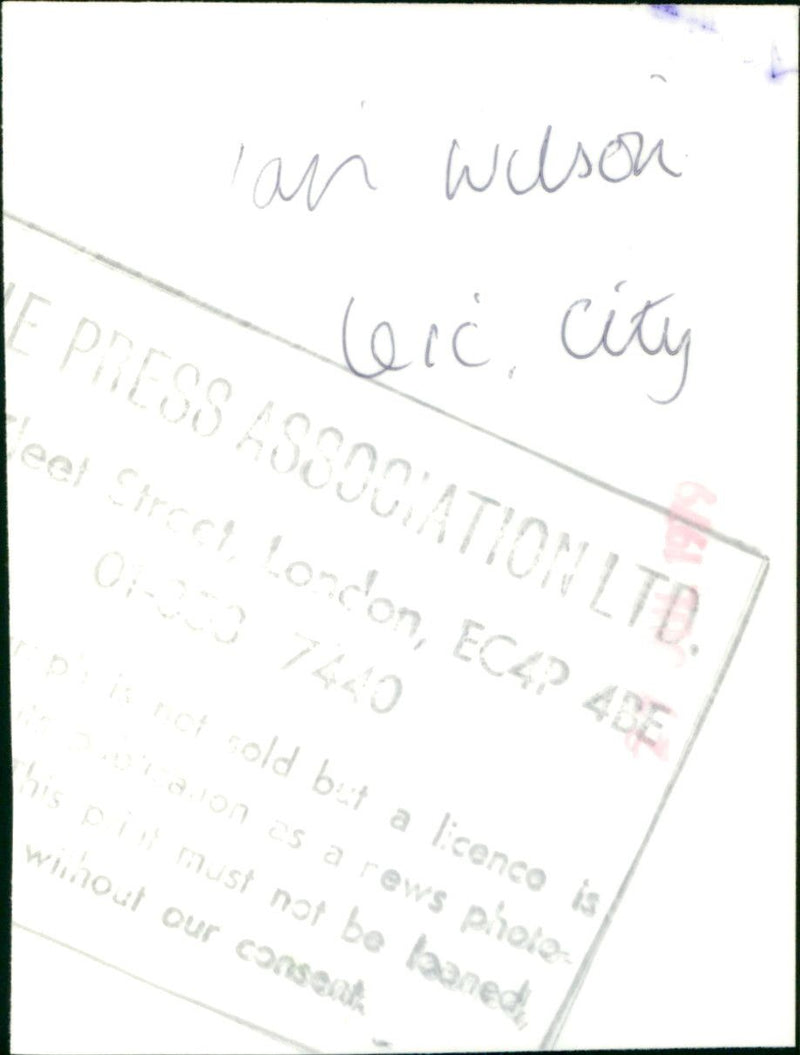 Ian Wilson
Leic. City
HE PRESS ASSOCIATION LTD.
Fleet Street, London, EC4P 4BE
01-353 7440
raph is not sold but a licence is
publication as a news photo-
This print must not be loaned,
without our consent.